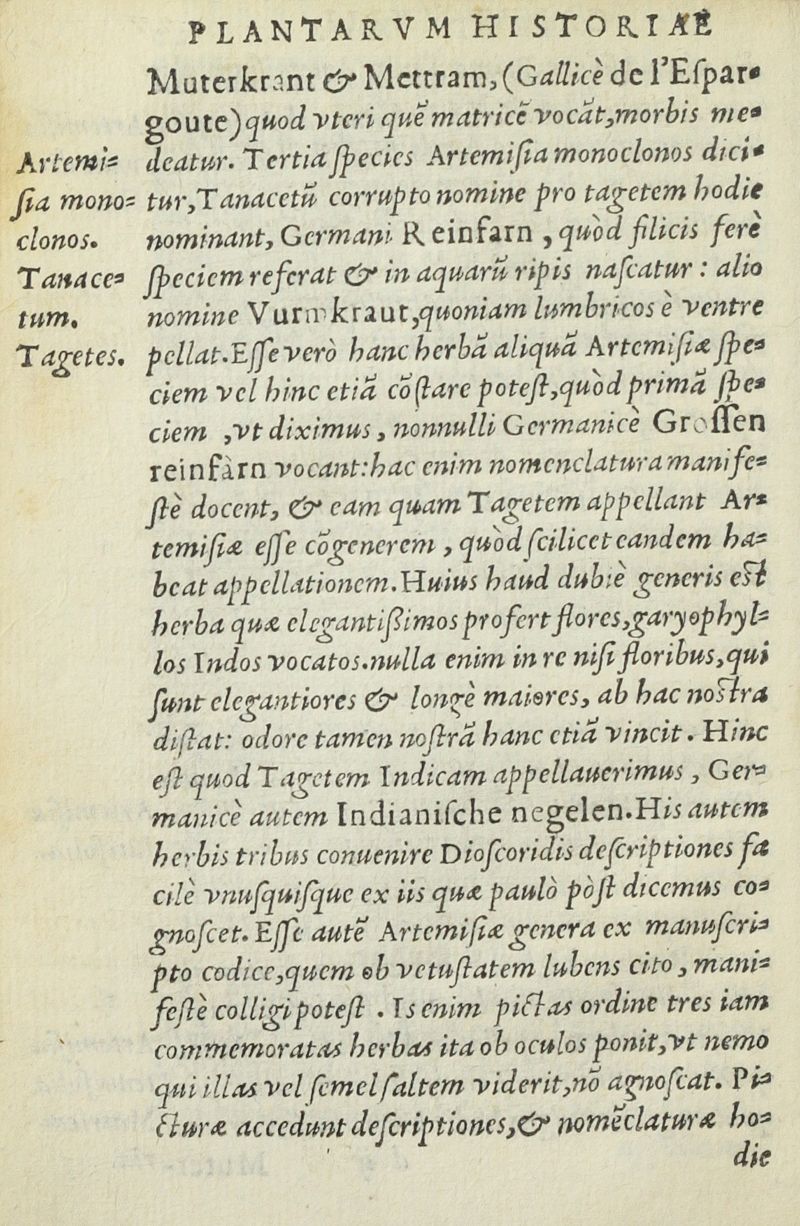 PLANTARVM HISTORIAE
Muterkrant & Mettram, (Gallicè de l'Eſpar-
goute) quod vteri quē matricē vocāt, morbis me-
deatur. Tertia ſpecies Artemiſia monoclonos dici-
tur, Tanacetū corrupto nomine pro tagetem hodie
nominant, Germani Reinfarn, quòd filicis ferè
ſpeciem referat & in aquarū ripis naſcatur: alio
nomine Vurmkraut, quoniam lumbricos è ventre
pellat. Eſſe verò hanc herbā aliquā Artemiſiæ ſpe-
ciem vel hinc etiā cōſtare poteſt, quòd primā ſpe-
ciem, vt diximus, nonnulli Germanicè Groſſen
reinfàrn vocant: hac enim nomenclatura manife-
ſtè docent, & eam quam Tagetem appellant Ar-
temiſiæ eſſe cōgenerem, quòd ſcilicet eandem ha-
beat appellationem. Huius haud dubiè generis est
herba quæ elegantißimos profert flores, garyophyl-
los Indos vocatos. nulla enim in re niſi floribus, qui
ſunt elegantiores & longè maiores, ab hac nostra
diſtat: odore tamen noſtrā hanc etiā vincit. Hinc
eſt quod Tagetem Indicam appellauerimus, Ger-
manicè autem Indianiſche negelen. His autem
herbis tribus conuenire Dioſcoridis deſcriptiones fa
cilè vnuſquiſque ex iis quæ paulò pòſt dicemus co-
gnoſcet. Eſſe autē Artemiſiæ genera ex manuſcri-
pto codice, quem ob vetuſtatem lubens cito, mani-
feſtè colligi poteſt. Is enim pictas ordine tres iam
commemoratas herbas ita ob oculos ponit, vt nemo
qui illas vel ſemel ſaltem viderit, nō agnoſcat. Pi-
cturæ accedunt deſcriptiones, & nomēclaturæ ho-
die
Artemi-
ſia mono-
clonos.
Tanace-
tum.
Tagetes.